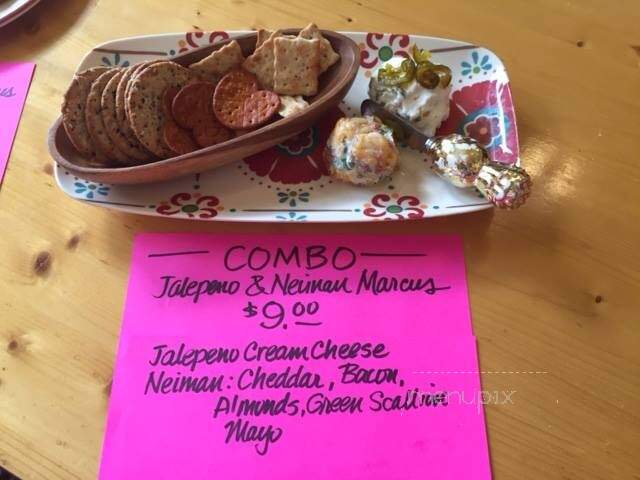 COMBO
Jalepeno & Neiman Marcus
$9.00
Jalepeno Cream Cheese
Neiman: Cheddar, Bacon,
Almonds, Green Scallion
Mayo
menupix